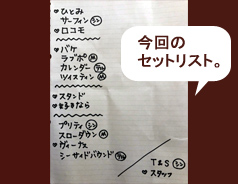 ♥ひとみ
サーフィン シン
♥ロコモ
♥バケ
ラブポ M
カレンダー
ツイスティン M
♥スタンド
♥好きなら
プリティ シン
スローダウン M
♥ヴィーナス
シーサイドバウンド
T&S シン
♥スタッフ
今回の
セットリスト。